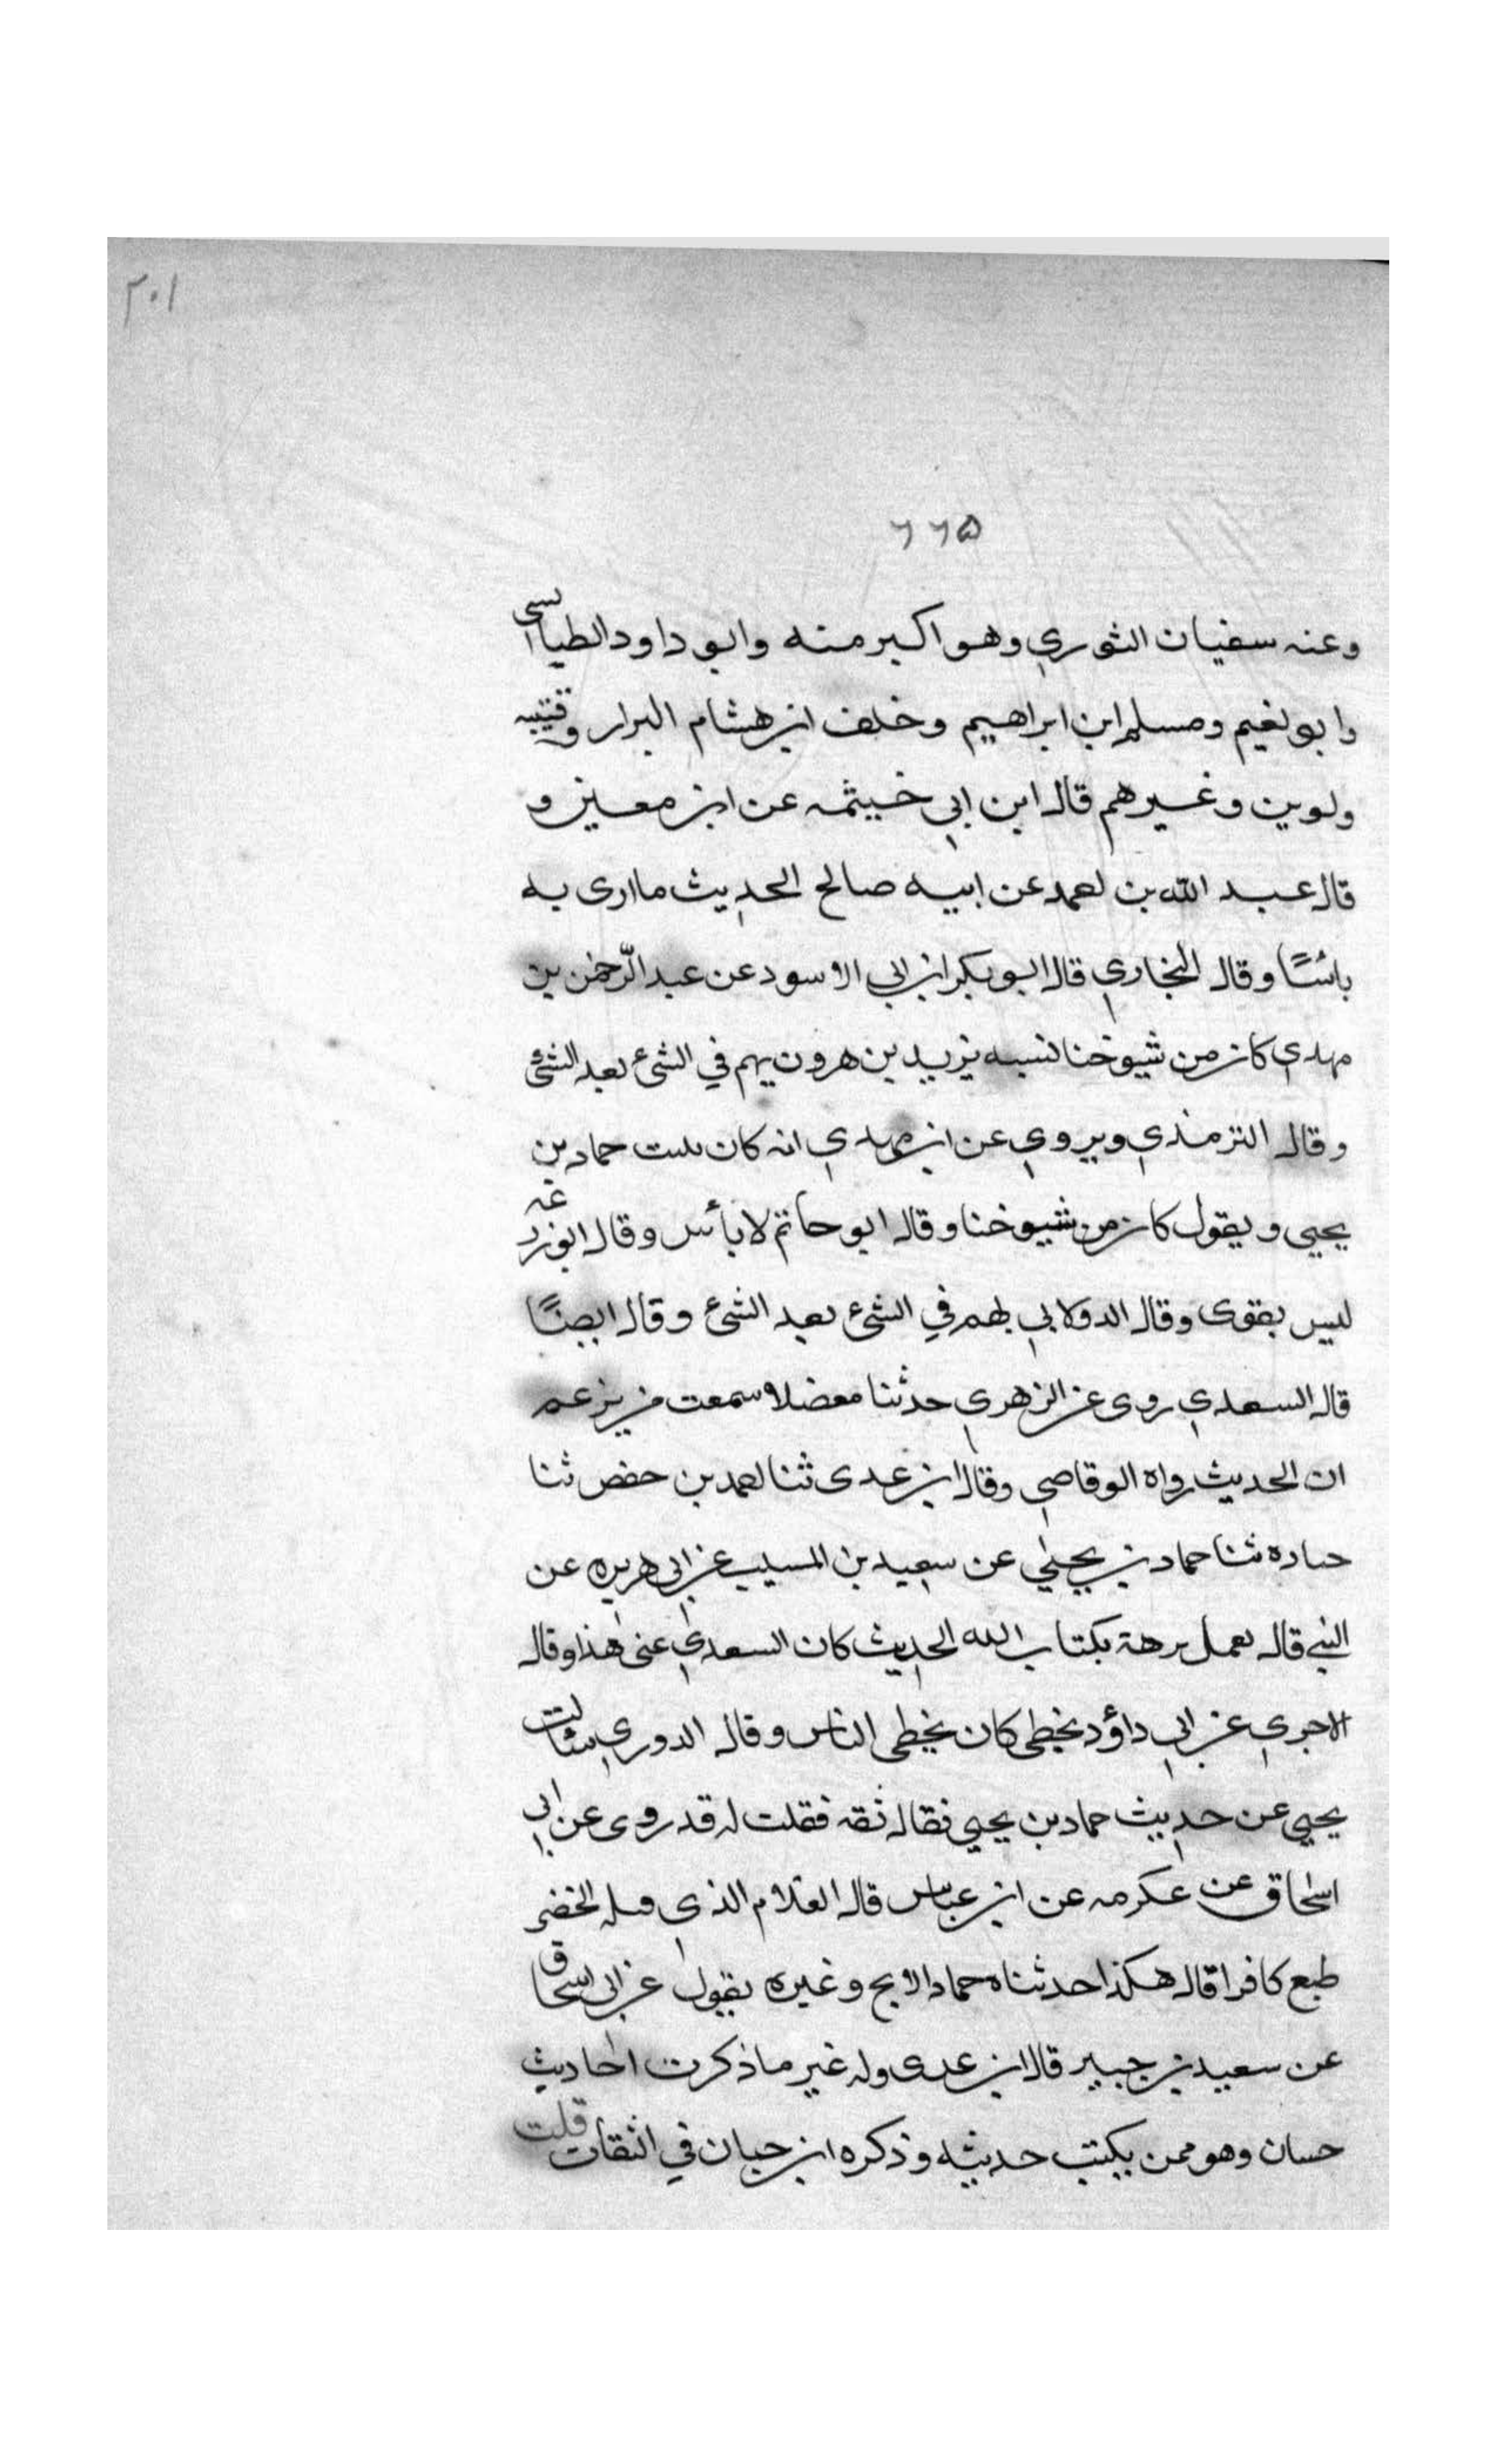 ٢٠١
٦٦٥
وعنه سفيان الثوري وهو اكبر منه وابو داود الطيالسى
وابو نعيم ومسلم ابن ابراهيم وخلف ابن هشام البرار وقتيبه
ولوين وغيرهم قال ابن ابي خيثمه عن ابن معين و
قال عبد الله بن احمد عن ابيه صالح الحديث ما ارى به
بائسًا وقال البخاري قال ابو بكر ابن ابي الاسود عن عبد الرّحمٰن بن
مهدي كان من شيوخنا نسبه يزيد بن هرون يهم في الشئ بعد الشئ
وقال الترمذي ويروي عن ابن مهدي انه كان حماد بن
يحيي ويقول كان من شيوخنا وقال ابو حاتم لا بأس وقال ابوزرعه
ليس بقوى وقال الدولابي يهم في الشئ بعد الشئ وقال ايضًا
قال السعدي روى عن الزهري حدثنا معضلا سمعت من يزعم
ان الحديث رواه الوقاصي وقال ابن عدى ثنا احمد بن حفص ثنا
حباره ثنا حماد بن يحيٰي عن سعيد بن المسيب عن ابي هريره عن
النبي قال يعمل برهة بكتاب الله الحديث كان السعدي عنى هٰذا وقال
الاجري عن ابي داؤد يخطى كان يخطى الناس وقال الدوري سئالت
يحيي عن حديث حماد بن يحيي فقال ثقه فقلت له قد روى عن ابي
اسٰحاق عن عكرمه عن ابن عباس قال الغلام الذي قتله الخضر
طبع كافرا قال هكذا حدثناه حماد الابح وغيره يقول عن ابي اسحاق
عن سعيد بن جبير قال ابن عدى وله غير ما ذكرت احاديث
حسان وهو ممن يكتب حديثه وذكره ابن حبان في الثقات قلت